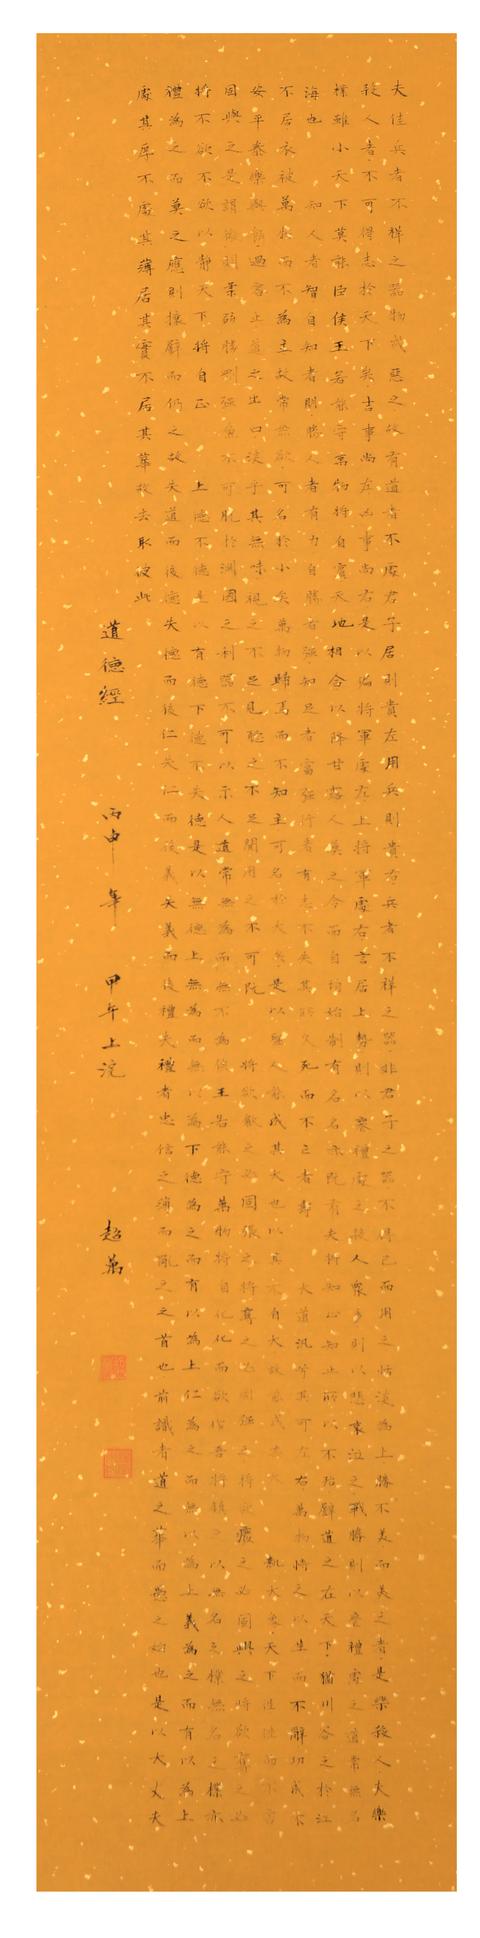 夫佳兵者不祥之器物或惡之故有道者不處君子居則貴左用兵則貴右兵者不祥之器非君子之器不得已而用之恬淡為上勝不美而美之者是樂殺人夫樂
殺人者不可得志於天下矣吉事尚左凶事尚右是以偏將軍處左上將軍處右言居上勢則以喪禮處之殺人衆多則以悲哀泣之戰勝則以喪禮處之道常無名
樸雖小天下莫能臣侯王若能守萬物將自賓天地相合以降甘露人莫之令而自均始制有名名亦既有夫將知止知止所以不殆譬道之在天下猶川谷之於江
海也 知人者智自知者明勝人者有力自勝者強知足者富強行者有志不失其所久死而不亡者壽 大道汎兮其可左右萬物恃之以生而不辭功成不
不居衣被萬物而不為主故常無欲可名於小矣萬物歸焉而不知主可名於大矣是以聖人能成其大也以其不自大故能成其大 執大象天下往往而不害
安平泰樂與餌過客止道之出口淡乎其無味視之不足見聽之不足聞用之不可既 將欲歙之必固張之將之必固強之將欲廢之必固興之將欲奪之必
固與之是謂微明柔弱勝剛強魚不可脫於淵國之利器不可以示人 道常無為而無不為侯王若能守萬物將自化化而欲作吾將鎮之以無名之樸無名之樸亦
將不欲不欲以靜天下將自正 上德不德是以有德下德不失德是以無德上無為而無以為下德為之而有以為上仁為之而無以為上義為之而有以為上
禮為之而莫之應則攘臂而仍之故失道而後德失德而後仁失仁而後義失義而後禮夫禮者忠信之薄而亂之之首也前識者道之華而愚之始也是以大丈夫
處其厚不處其薄居其實不居其華故去取彼此
道德經 丙申年 甲午上浣 趙萬